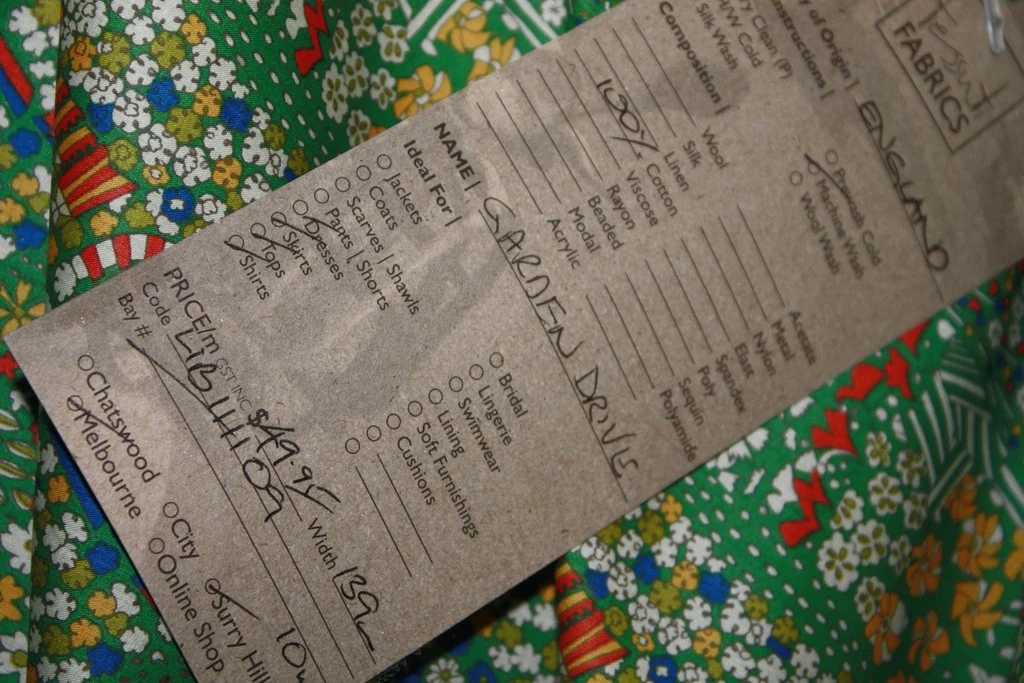 Tessuti
FABRICS
y of Origin | ENGLAND
nstructions |
ry Clean (P)
H/W Cold
Silk Wash
Prewash Cold
Machine Wash
Wool Wash
Composition |
Wool
Silk
Linen
100% Cotton
Viscose
Rayon
Beaded
Modal
Acrylic
Acetate
Metal
Nylon
Elast
Spandex
Poly
Sequin
Polyamide
NAME | GARDEN DRIVE
Ideal For |
Jackets
Coats
Scarves | Shawls
Pants | Shorts
Dresses
Skirts
Tops
Shirts
Bridal
Lingerie
Swimwear
Lining
Soft Furnishings
Cushions
PRICE/m GST INC $49.95 Width 139
Code LIB1H109
Bay #
Chatswood
Melbourne
City
Online Shop
Surry Hill
10